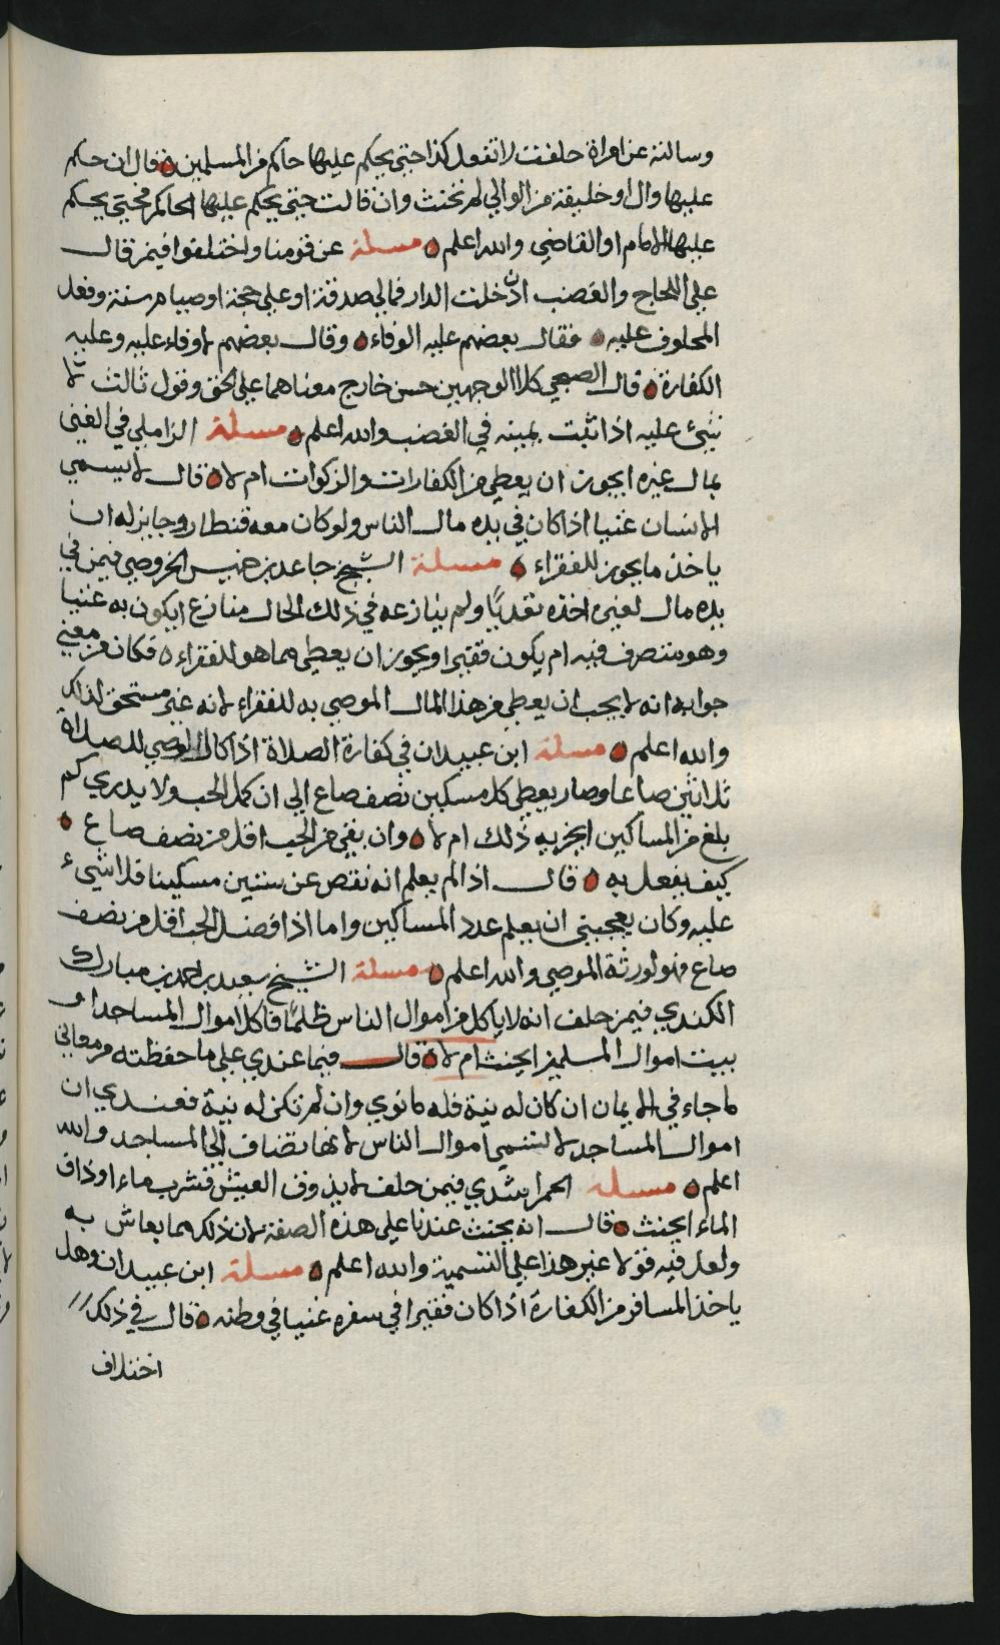 وسالته عن امراة حلفت لا تفعل كذا حتى يحكم عليها حاكم من المسلمين ه قال ان حكم
عليها وال او خليفة من الوالي لم تحنث وان قالت حتى يحكم عليها الحاكم فحتى يحكم
عليها الامام او القاضي والله اعلم ه مسلة عن قومنا واختلفوا فيمن قال
على اللجاج والغضب ان دخلت الدار فمالي صدقة او علي حجة او صيام سنة وفعل
المحلوف عليه ه فقال بعضهم عليه الوفاء ه وقال بعضهم لا وفاء عليه وعليه
الكفارة ه قال الصبحي كلا الوجهين حسن خارج معناهما على الحق وقول ثالث لا
شيء عليه اذا ثبت يمينه في الغضب والله اعلم ه مسلة الزاملي في الغني
بمال غيره ايجوز ان يعطى من الكفارات والزكوات ام لا ه قال لا يسمى
الانسان غنيا اذا كان في يده مال الناس ولو كان معه قنطار وجايز له ان
ياخذ ما يجوز للفقراء ه مسلة الشيخ جاعد بن خميس الخروصي فيمن في
يده مال لغيره اخذه تعديًا ولم ينازعه في ذلك الحال منازع ايكون به غنيا
وهو متصرف فيه ام يكون فقيرا ويجوز ان يعطى مما هو للفقراء ه فكان من معنى
جوابه انه لا يجب ان يعطى من هذا المال الموصى به للفقراء لانه غير مستحق لذلك
والله اعلم ه مسلة ابن عبيدان في كفارة الصلاة اذا كال الوصي للصلاة
ثلاثين صاعا وصار يعطي كل مسكين نصف صاع الى ان كمل الحب ولا يدري كم
بلغ من المساكين ايجزيه ذلك ام لا ه وان بقي من الحب اقل من نصف صاع ه
كيف يفعل به ه قال اذا لم يعلم انه نقص عن ستين مسكينا فلا شيء
عليه وكان يعجبني ان يعلم عدد المساكين واما اذا فضل الحب اقل من نصف
صاع فهو لورثة الموصي والله اعلم ه مسلة الشيخ سعيد بن احمد بن مبارك
الكندي فيمن حلف انه لا ياكل من اموال الناس ظلمًا فاكل اموال المساجد او
بيت اموال المسلمين ايحنث ام لا ه قال فيما عندي على ما حفظته من معاني
ما جاء في الايمان ان كان له نية فله ما نوى وان لم تكن له نية فعندي ان
اموال المساجد لا تسمى اموال الناس لانها تضاف الى المساجد والله
اعلم ه مسلة الحمراشدي فيمن حلف لا يذوق العيش فشرب ماء او ذاق
الماء ايحنث ه قال انه يحنث عندنا على هذه الصفة لان ذلك مما يعاش به
ولعل فيه قولا غير هذا على التسمية والله اعلم ه مسلة ابن عبيدان وهل
ياخذ المسافر من الكفارة اذا كان فقيرا في سفره غنيا في وطنه ه قال في ذلك
اختلاف